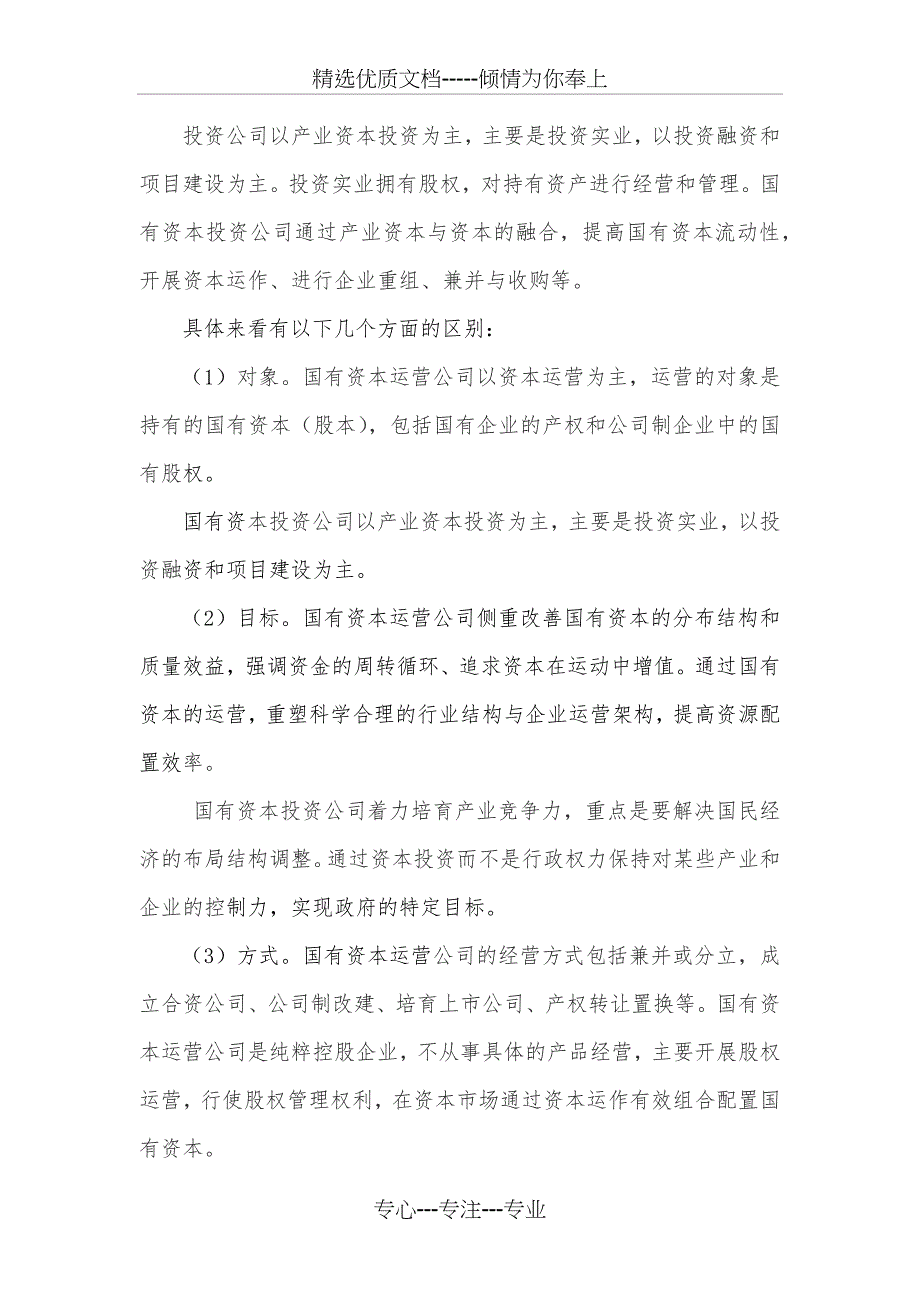 精选优质文档-----倾情为你奉上
投资公司以产业资本投资为主，主要是投资实业，以投资融资和
项目建设为主。投资实业拥有股权，对持有资产进行经营和管理。国
有资本投资公司通过产业资本与资本的融合，提高国有资本流动性，
开展资本运作、进行企业重组、兼并与收购等。
具体来看有以下几个方面的区别：
（1）对象。国有资本运营公司以资本运营为主，运营的对象是
持有的国有资本（股本），包括国有企业的产权和公司制企业中的国
有股权。
国有资本投资公司以产业资本投资为主，主要是投资实业，以投
资融资和项目建设为主。
（2）目标。国有资本运营公司侧重改善国有资本的分布结构和
质量效益，强调资金的周转循环、追求资本在运动中增值。通过国有
资本的运营，重塑科学合理的行业结构与企业运营架构，提高资源配
置效率。
国有资本投资公司着力培育产业竞争力，重点是要解决国民经
济的布局结构调整。通过资本投资而不是行政权力保持对某些产业和
企业的控制力，实现政府的特定目标。
（3）方式。国有资本运营公司的经营方式包括兼并或分立，成
立合资公司、公司制改建、培育上市公司、产权转让置换等。国有资
本运营公司是纯粹控股企业，不从事具体的产品经营，主要开展股权
运营，行使股权管理权利，在资本市场通过资本运作有效组合配置国
有资本。
专心---专注---专业